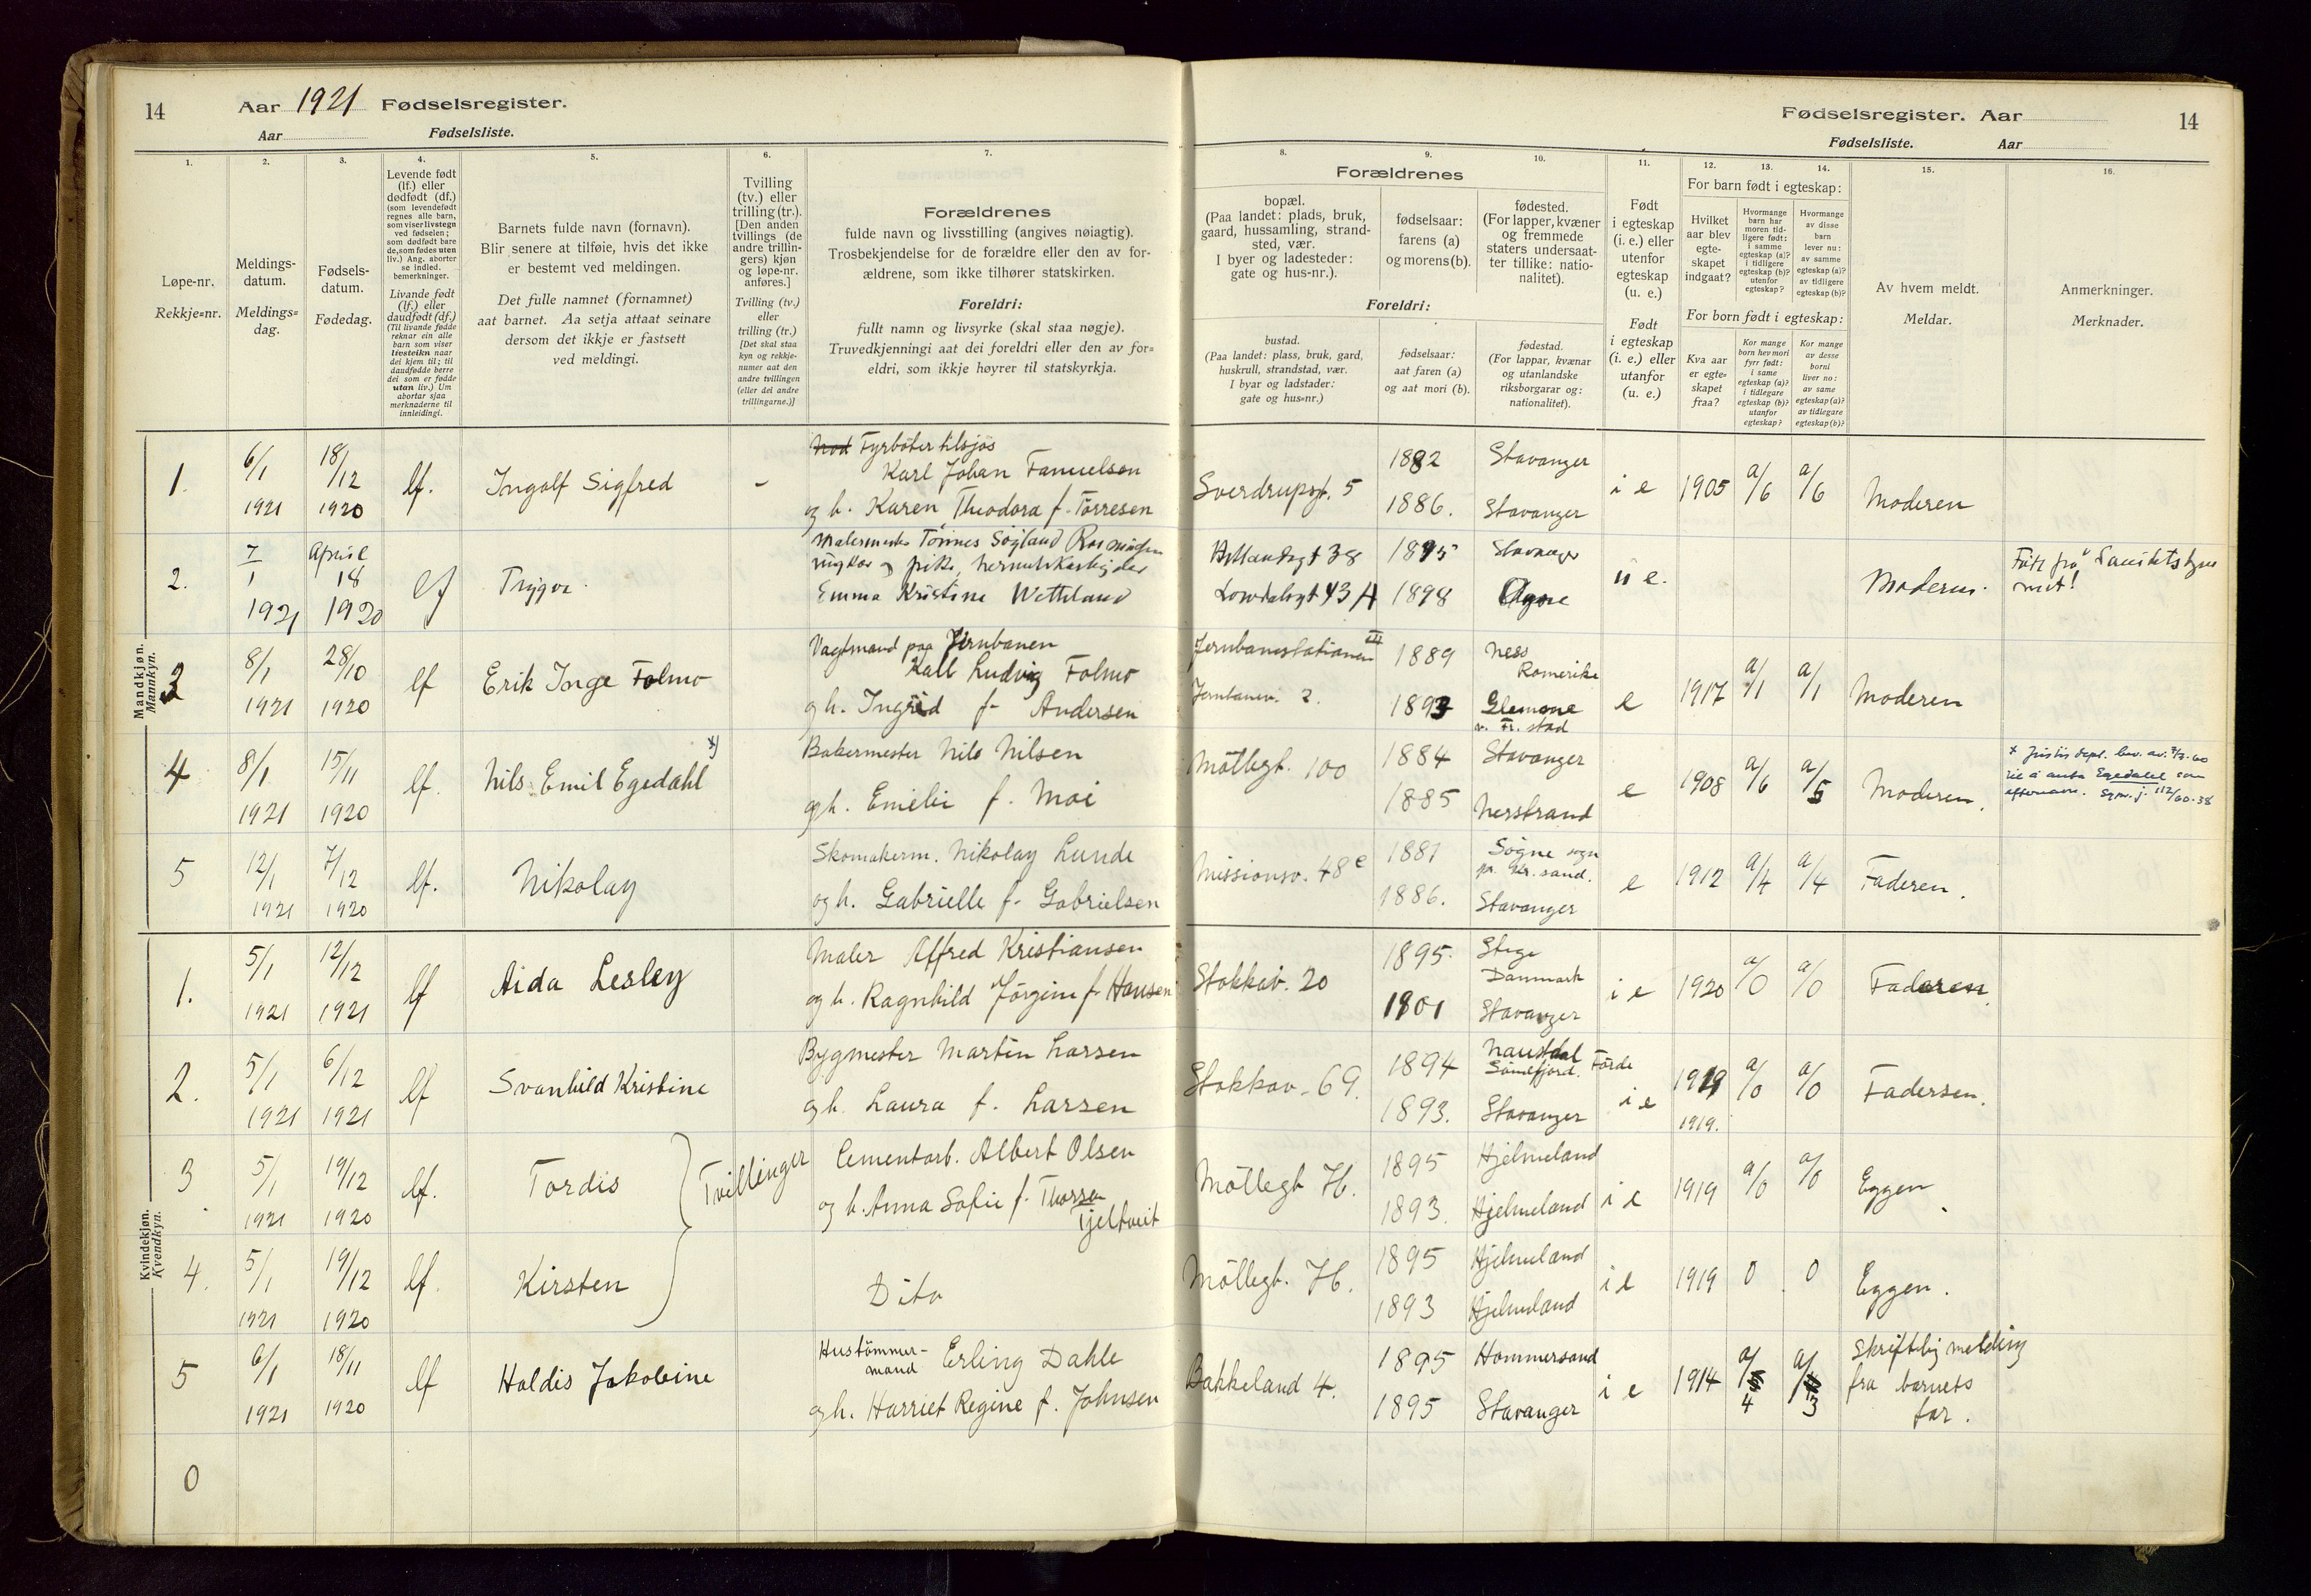 14
Aar 1921 Fødselsregister.
Aar Fødselsliste.
Fødselsregister. Aar
Fødselsliste. Aar
14
1.
Løpe-nr.
Rekkje=nr.
2.
Meldings-
datum.
Meldings=
dag.
3.
Fødsels-
datum.
Fødedag.
4.
Levende født
(lf.) eller
dødfødt (df.)
(som levendefødt
regnes alle barn,
som viser livstegn
ved fødselen;
som dødfødt bare
de, som fødes uten
liv.) Ang. aborter
se indled.
bemerkninger.
Livande født
(lf.) eller
daudfødt (df.)
(Til livande fødde
reknar ein alle
barn som viser
livsteikn naar
dei kjem til; til
daudfødde berre
dei som er fødde
utan liv.) Um
abortar sjaa
merknaderne til
innleidingi.
5.
Barnets fulde navn (fornavn).
Blir senere at tilføie, hvis det ikke
er bestemt ved meldingen.
Det fulle namnet (fornamnet)
aat barnet. Aa setja attaat seinare
dersom det ikkje er fastsett
ved meldingi.
6.
Tvilling
(tv.) eller
trilling (tr.).
[Den anden
tvillings (de
andre trillin-
gers) kjøn
og løpe-nr.
anføres.]
Tvilling (tv.)
eller
trilling (tr.)
[Det skal staa
kyn og rekkje-
numer aat den
andre tvillingen
(eller dei andre
trillingarne.)]
7.
Forældrenes
fulde navn og livsstilling (angives nøiagtig).
Trosbekjendelse for de forældre eller den av for-
ældrene, som ikke tilhører statskirken.
Foreldri:
fullt namn og livsyrke (skal staa nøgje).
Truvedkjenningi aat dei foreldri eller den av for=
eldri, som ikkje høyrer til statskyrkja.
Forældrenes
8.
bopæl.
(Paa landet: plads, bruk,
gaard, hussamling, strand-
sted, vær.
I byer og ladesteder:
gate og hus-nr.).
9.
fødselsaar:
farens (a)
og morens (b).
10.
fødested.
(For lapper, kvæner
og fremmede
staters undersaat-
ter tillike: natio-
nalitet).
Foreldri:
bustad.
(Paa landet: plass, bruk, gard,
huskrull, strandstad, vær.
I byar og ladstader:
gate og hus=nr.)
fødselsaar:
aat faren (a)
og aat mori (b).
fødestad.
(For lappar, kvænar
og utanlandske
riksborgarar og:
nationalitet).
11.
Født
i egteskap
(i. e.) eller
utenfor
egteskap
(u. e.)
Født
i egteskap
(i. e.) eller
utanfor
(u. e.)
12. 13. 14.
For barn født i egteskap:
Hvilket
aar blev
egte-
skapet
indgaat?
Hvormange
barn har
moren tid-
ligere født:
i samme
egteskap (a)?
i tidligere
egteskap (b)?
utenfor
egteskap?
Hvormange
av disse
barn
lever nu:
av samme
egteskap (a)?
av tidligere
egteskap (b)?
For born født i egteskap:
Kva aar
er egte=
skapet
fraa?
Kor mange
born hev mori
fyrr født:
i same
egteskap (a)?
i tidlegare
egteskap (b)?
utanfor
egteskap?
Kor mange
av desse
borni
liver no:
av same
egteskap (a)?
av tidlegare
egteskap (b)?
15.
Av hvem meldt.
Meldar.
16.
Anmerkninger.
Merknader.
Mandkjøn.
Mannkyn.
1. 6/1 1921 18/12 1920 lf. Ingolf Sigfred -
Fyrbøter tilsjøs
Karl Johan Fanuelsen
og h. Karen Theodora f. Tørresen
Sverdrupsgt. 5 1882 Stavanger
1886. Stavanger
i e 1905 a/6 a/6 Moderen
2. 7/1 1921 April 18 1920 lf Trygve.
Malermester Tönnes Sögland
Emma Kristine Wetteland
38 1895 Stavanger
43 A 1898
u e. Moderen.
3 8/1 1921 28/10 1920 lf Erik Inge Folmo
Vagtmand paa Jernbanen
Kall Ludvig Folmo
og h. Ingrid f. Andersen
Jernbanestationen III 1889 Ness
Romerike
Jernbanev. 2. 1893 Glemone
v. Fr. stad
e 1917 a/1 a/1 Moderen
4 8/1 1921 15/11 1920 lf. Nils Emil Egedahl x)
Bakermester Nils Nilsen
og h. Emelie f. Moi
Möllegt. 100 1884 Stavanger
1885 Nerstrand
e 1908 a/6 a/5 Moderen.
x Justisdept. bev. av. 7/3-60
til å anta Egedahl som
etternavn. j. 112/60-38
5 12/1 1921 7/12 1920 lf. Nikolay
Skomakerm. Nikolay Lunde
og h. Gabrielle f. Gabrielsen
Missionsv. 48 e 1881 Søgne sogn
pr. Kr. sand.
1886. Stavanger
e 1912 a/4 a/4 Faderen.
Kvindekjøn.
Kvendkyn.
1. 5/1 1921 12/12 1921 lf Aida Lesley
Maler Alfred Kristiansen
og h. Ragnhild Jörgine f. Hansen
Stokkav. 20 1895. Stege
Danmark
1901 Stavanger
i e 1920 a/0 a/0 Faderen.
2. 5/1 1921 6/12 1921 lf Svanhild Kristine
Bygmester Martin Larsen
og h. Laura f. Larsen
Stokkav. 69. 1894 Naustdal
Søndfjord. Förde
1893. Stavanger
i e 1919 a/0 a/0 Fadersen.
1919.
3 5/1 1921 19/12 1920 lf. Tordis Tvillinger
Cementarb. Albert Olsen
og h. Anna Sofie f. Thorsen
Tjeltveit
Möllegt H. 1895 Hjelmeland
1893. Hjelmeland
i e 1919 a/0 a/0 Eggen.
4. 5/1 1921 19/12 1920 lf. Kirsten
Dito
Möllegt. H. 1895 Hjelmeland
1893 Hjelmeland
i e 1919 0 0 Eggen.
5 6/1 1921 18/11 1920 lf Haldis Jakobine
Hustömmer-
mand Erling Dahle
og h. Harriet Regine f. Johnsen
Bakkeland 4. 1895 Hommersand
1895 Stavanger
i e 1914 a/4 a/3 Skriftlig melding
fra barnets
far.
0